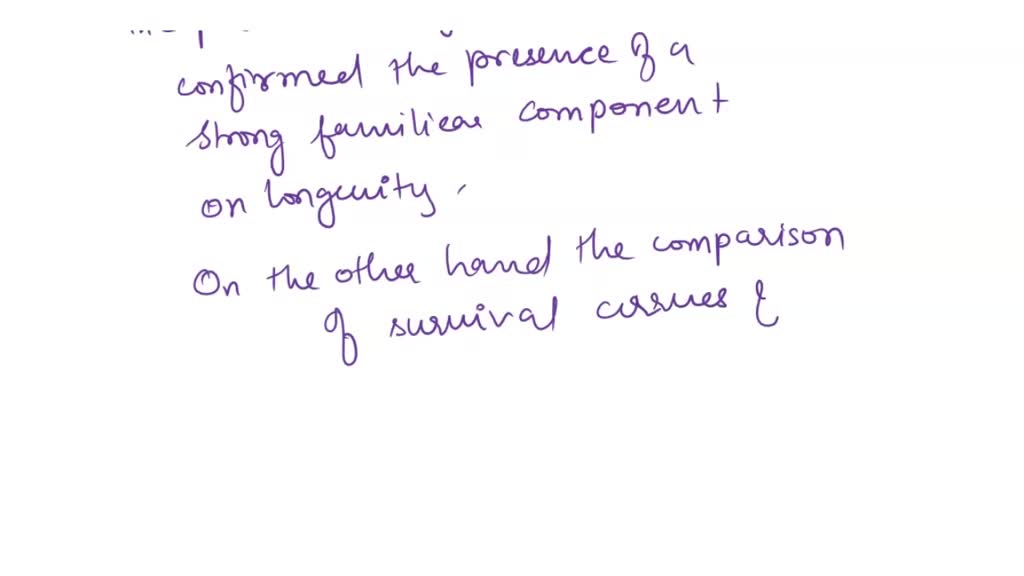 confirmed the presence of a
strong familiear component
on longevity,
On the other hand the comparison
of survival curves &